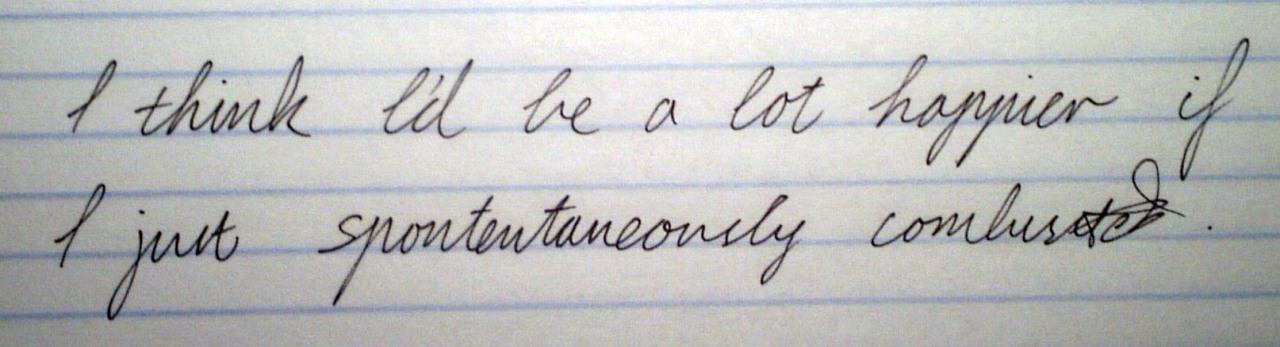 I think I'd be a lot happier if
I just spontentaneously combusted.